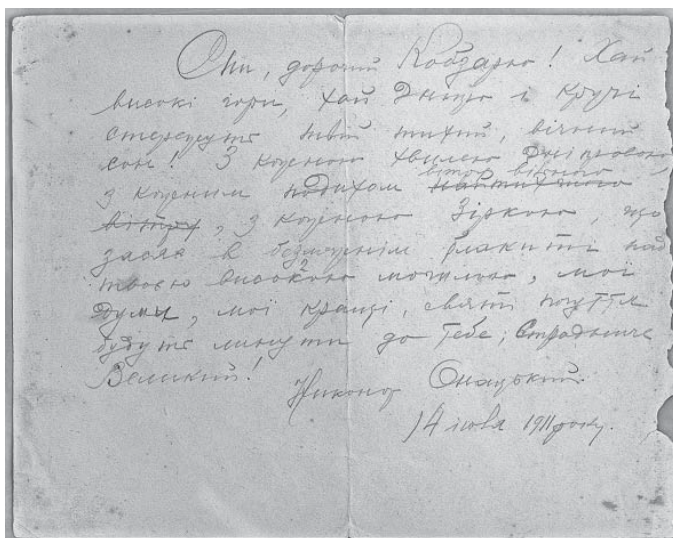 Спи, дорогий Кобзарю! Хай
високі гори, хай Дніпро і кручі
стережуть твій тихий, вічний
сон! З кожною хвилею Дніпровою,
вітра вічного
з кожним подихом
вітру, з кожною Зіркою, що
засяє в безмежнім блакиті над
твоєю високою могилою, мої
думи, мої кращі, святі почуття
будуть линути до Тебе, Страдниче
Великий!
Никонор Онацький.
14 іюля 1911 року.